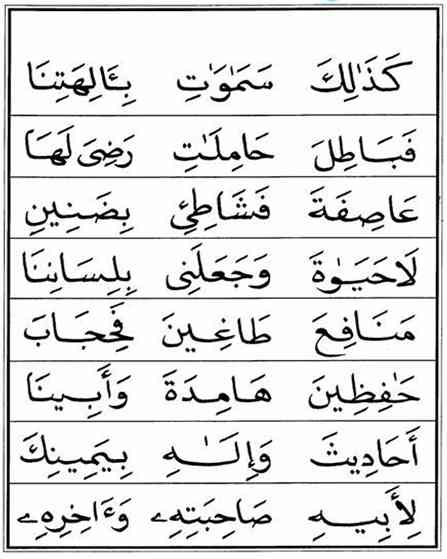 كَذَٰلِكَ سَمَٰوَٰتِ بِـَٔالِهَتِنَا
فَبَاطِلَ حَامِلَٰتِ رَضِىَ لَهَا
عَاصِفَةَ فَشَاطِئِ بِضَنِينِ
لَاحَيَوٰةَ وَجَعَلَنِى بِلِسَانِنَا
مَنَافِعَ طَاغِينَ فَحِجَابَ
حَٰفِظِينَ هَامِدَةَ وَأَبِينَا
أَحَادِيثَ وَإِلَٰهِ بِيَمِينِكَ
لِأَبِيهِ صَاحِبَتِهِۦ وَءَاخِرِهِۦ